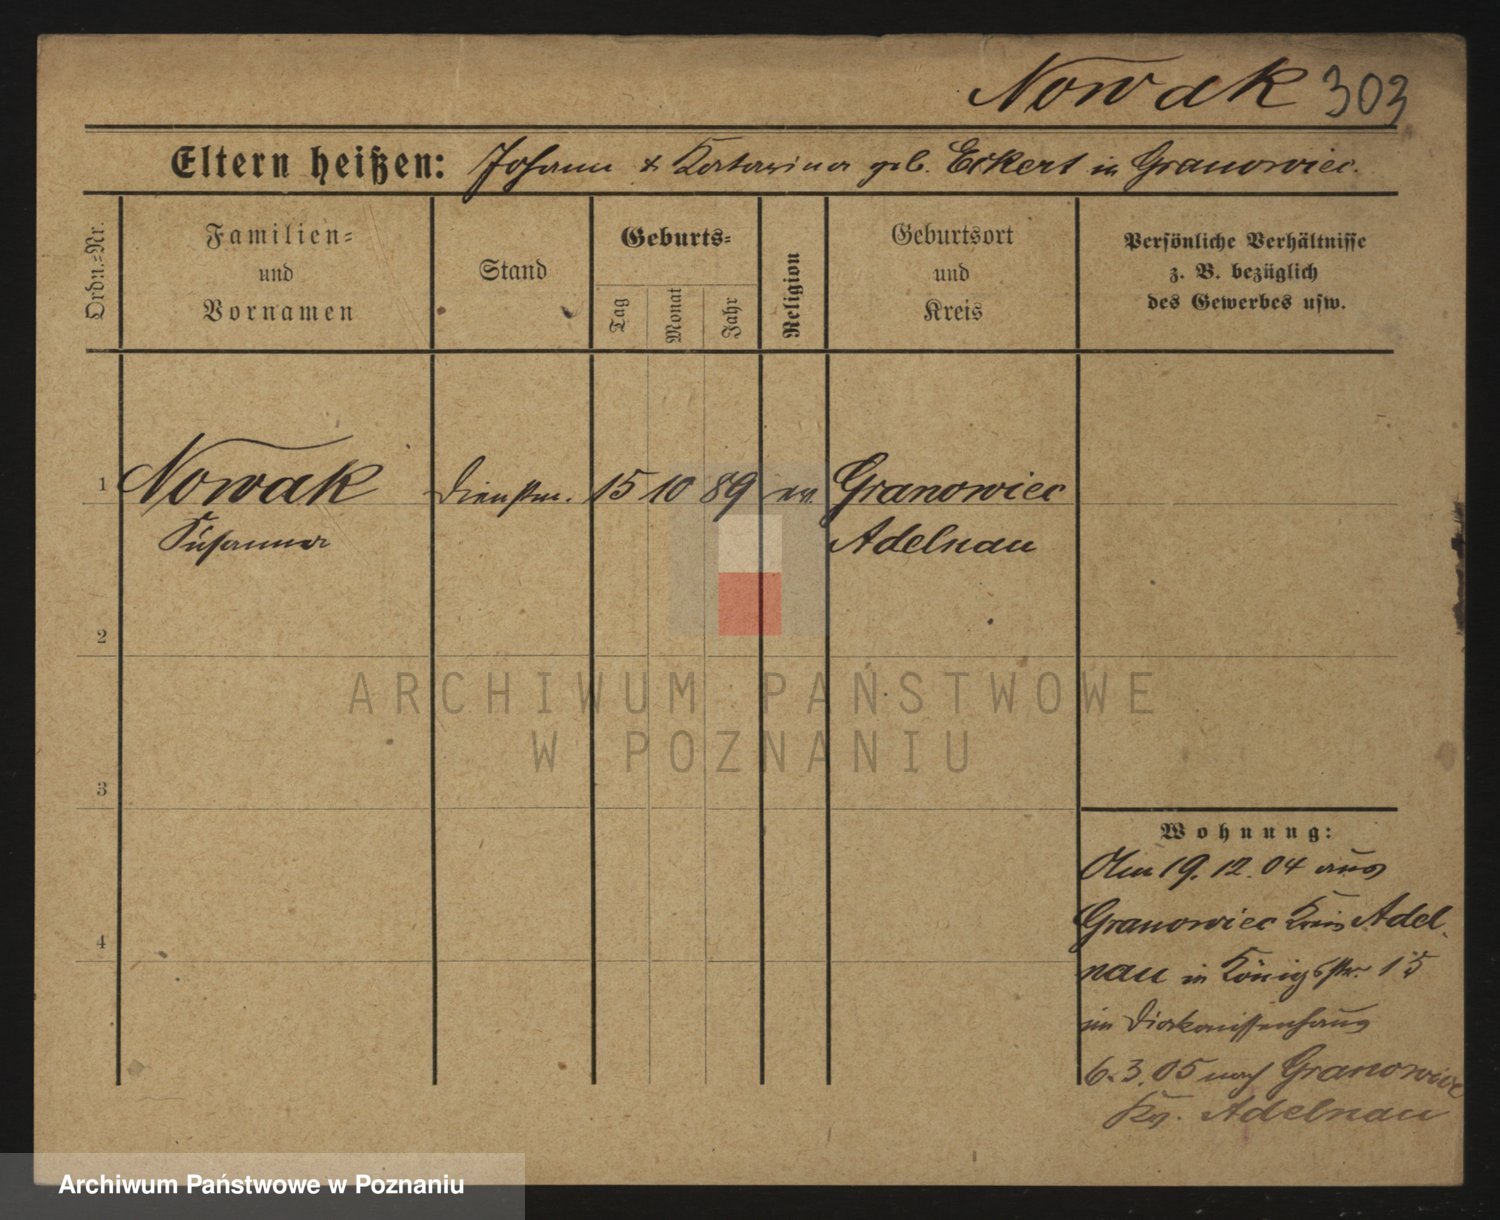 Nowak 303
Eltern heißen: Johann & Katarina geb. Eckert in Granowiec.
Ordn.-Nr.
Familien-
und
Vornamen
Stand
Geburts-
Tag
Monat
Jahr
Religion
Geburtsort
und
Kreis
Persönliche Verhältnisse
z. B. bezüglich
des Gewerbes usw.
1 Nowak Dienstm. 15 10 89 ev. Granowiec
Susanna Adelnau
2
ARCHIWUM PAŃSTWOWE
W POZNANIU
3
Wohnung:
Am 19.12.04 aus
4 Granowiec Kreis Adel-
nau in Königstr. 15
im Diakonissenhaus
6.3.05 nach Granowiec
Kr. Adelnau
Archiwum Państwowe w Poznaniu